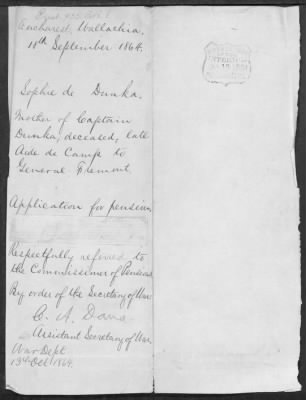 Bucharest, Wallachia,
11th September 1864.
Sophie de Dunka,
Mother of Captain
Dunka, deceased, late
Aide de Camp to
General Fremont.
Application for pension.
Respectfully referred to
the Commissioner of Pensions
By order of the Secretary of War
C. A. Dana
Assistant Secretary of War.
War Dept
13th Oct 1864.